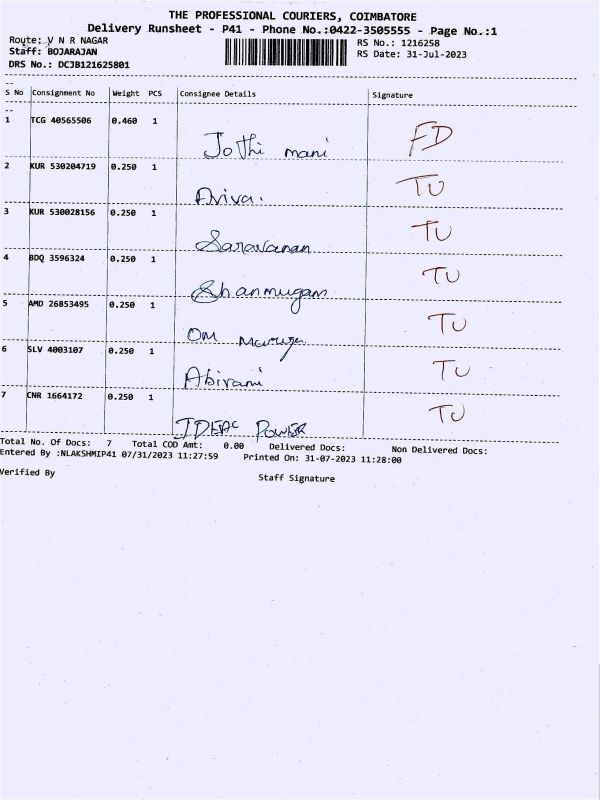 THE PROFESSIONAL COURIERS, COIMBATORE
Delivery Runsheet - P41 - Phone No.:0422-3505555 - Page No.:1
Route: V N R NAGAR RS No.: 1216258
Staff: BOJARAJAN RS Date: 31-Jul-2023
DRS No.: DCJB121625801
S No Consignment No Weight PCS Consignee Details Signature
1 TCG 40565506 0.460 1 Jothi mani FD
2 KUR 530204719 0.250 1 Aviva. TU
3 KUR 530028156 0.250 1 Saravanan TU
4 BDQ 3596324 0.250 1 Shanmugam TU
5 AMD 26853495 0.250 1 Om TU
6 SLV 4003107 0.250 1 Abirami TU
7 CNR 1664172 0.250 1 POWER TU
Total No. Of Docs: 7 Total COD Amt: 0.00 Delivered Docs: Non Delivered Docs:
Entered By :NLAKSHMIP41 07/31/2023 11:27:59 Printed On: 31-07-2023 11:28:00
Verified By Staff Signature